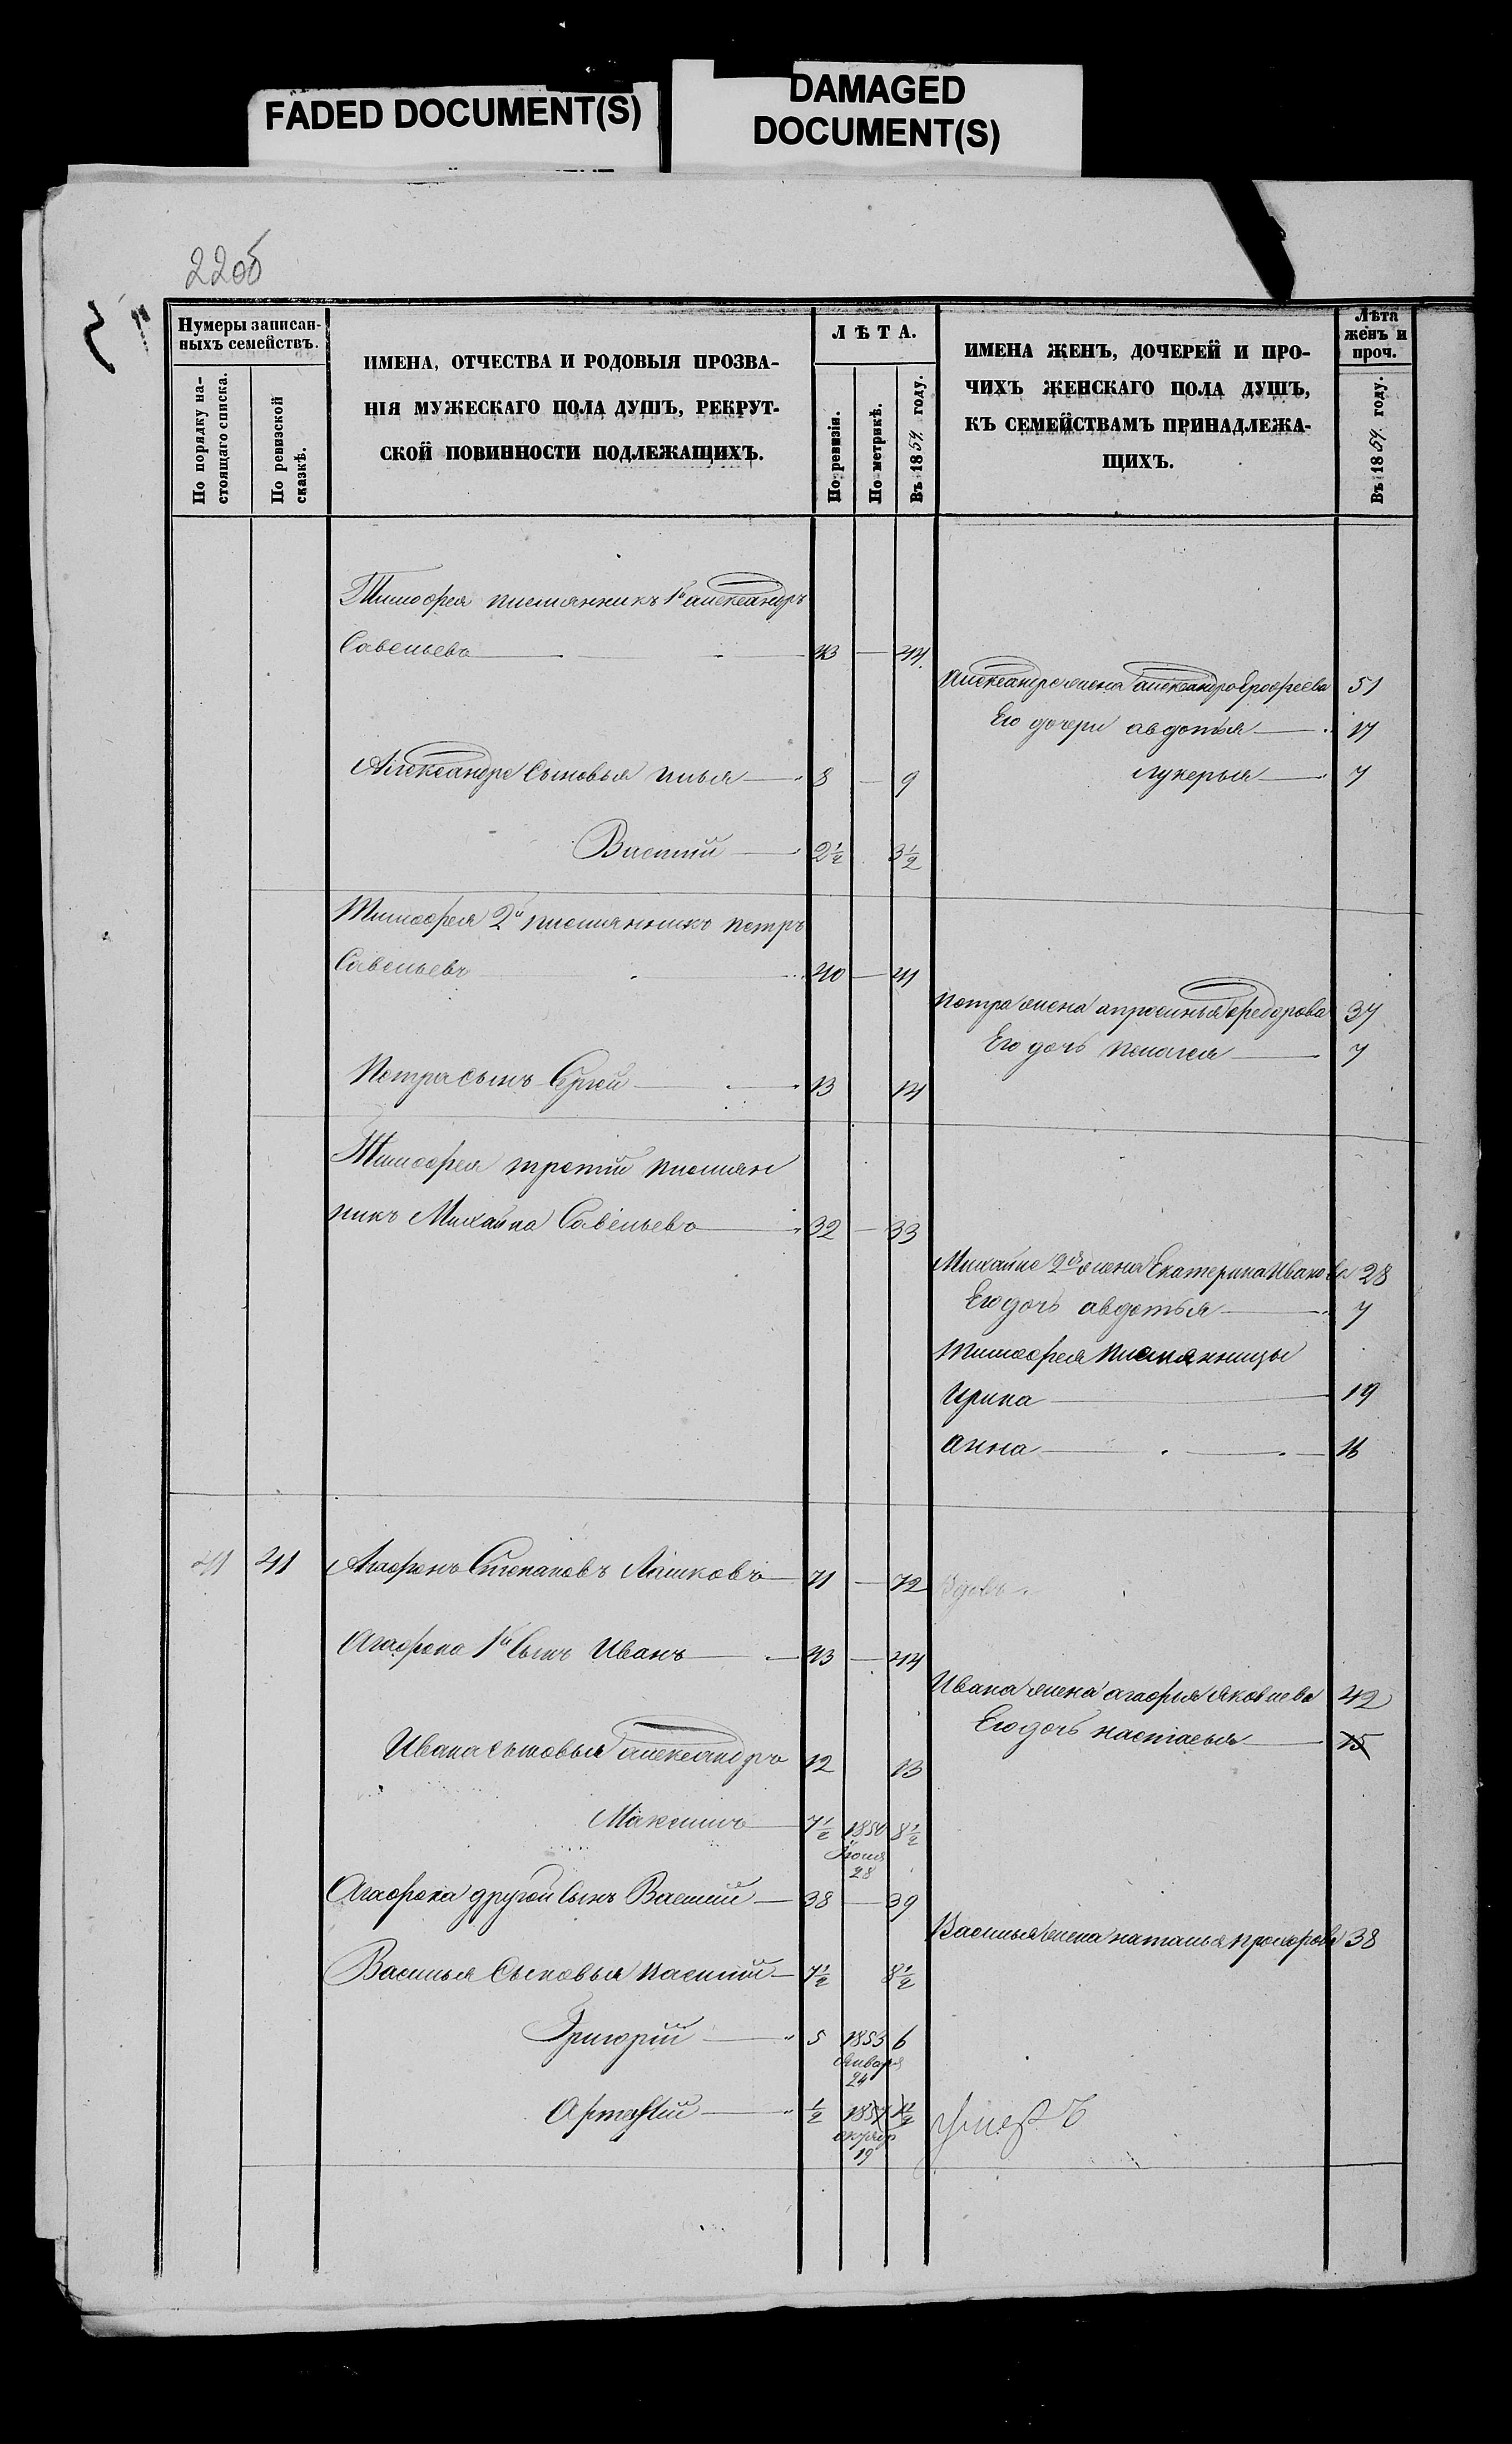 FADED DOCUMENT(S)
DAMAGED
DOCUMENT(S)
22об
Нумеры записан-
ныхъ семействъ.
По порядку на-
стоящаго списка.
По ревизской
сказкѣ.
ИМЕНА, ОТЧЕСТВА И РОДОВЫЯ ПРОЗВА-
НІЯ МУЖЕСКАГО ПОЛА ДУШЪ, РЕКРУТ-
СКОЙ ПОВИННОСТИ ПОДЛЕЖАЩИХЪ.
ЛѢТА.
По ревизіи.
По метрикѣ.
Въ 1859 году.
ИМЕНА ЖЕНЪ, ДОЧЕРЕЙ И ПРО-
ЧИХЪ ЖЕНСКАГО ПОЛА ДУШЪ,
КЪ СЕМЕЙСТВАМЪ ПРИНАДЛЕЖА-
ЩИХЪ.
Лѣта
женъ и
проч.
Въ 1859 году.
Тимофея племянникъ 1й александръ
Савельевъ 43 — 44
Александра жена александра Ерофеева 51
Его дочери авдотья 17
Александра Сыновья илья 8 — 9 лукерья 7
Василий 2 1/2 3 1/2
Тимофея 2й племянникъ петръ
Савельевъ 40 — 41
петра жена апросинья федорова 37
Его дочь пелагея 7
Петра сынъ Сергей 13 14
Тимофея третий племян
никъ Михайла Савельевъ 32 — 33
Михайлы 2ая жена Екатерина Иванова 28
Его дочь авдотья 7
тимофея племянницы
Ирина 19
анна 16
41 41 Агафонъ Степановъ Лашковъ 71 — 72 вдовъ.
Агафона 1й Сынъ Иванъ 43 — 44
Ивана жена агафья яковлева 42
Его дочь настасья 15
Ивана сыновья александръ 12 13
Максимъ 7 1/2 1850 8 1/2
Июня
28
Агафона другой Сынъ Василий 38 — 39
Василья жена наталья прохорова 38
Василья Сыновья василий 7 1/2 8 1/2
Григорий 5 1853 6
Января
24
1/2 1857 1 1/2
октяб
19